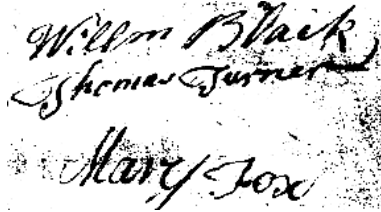 Willm Black
Thomas Turner
Mary Fox